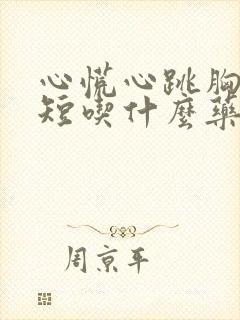 心慌心跳胸
短喫什麼藥
周京平